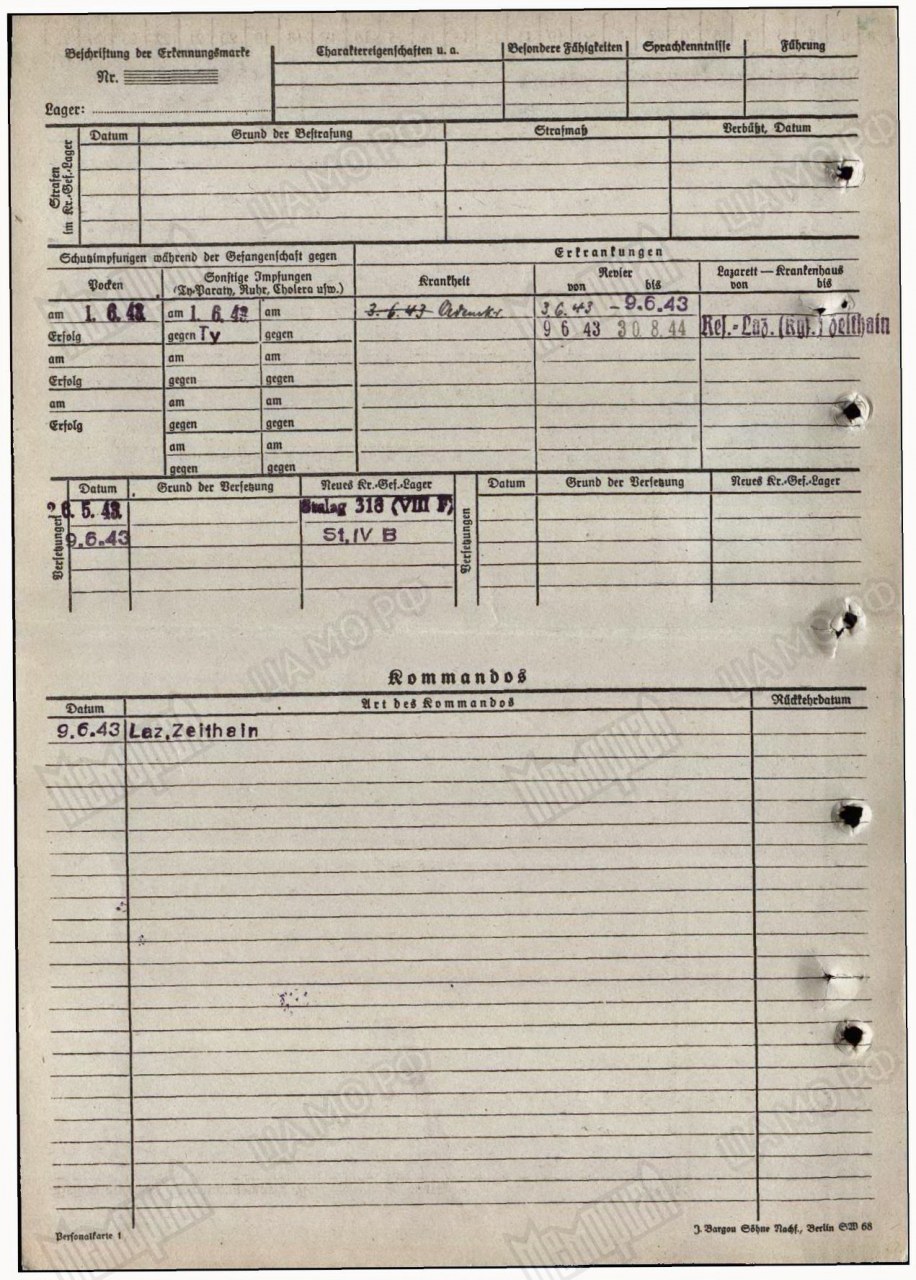 Beschriftung der Erkennungsmarke
Nr.
Lager:
Charaktereigenschaften u. a.
Besondere Fähigkeiten
Sprachkenntnisse
Führung
Strafen im Kr.-Gef.-Lager
Datum
Grund der Bestrafung
Strafmaß
Verbüßt, Datum
Schutzimpfungen während der Gefangenschaft gegen
Erkrankungen
Pocken
Sonstige Impfungen
(Ty-Paraty, Ruhr, Cholera usw.)
Krankheit
Revier
von bis
Lazarett — Krankenhaus
von bis
am 1. 6. 43 am 1. 6. 43 am 3.6.43 3.6.43 - 9.6.43
Erfolg gegen Ty gegen 9 6 43 30.8.44 Res.-Laz. (Kgf.) Zeithain
am am am
Erfolg gegen gegen
am am am
Erfolg gegen gegen
am am
gegen gegen
Versetzungen
Datum Grund der Versetzung Neues Kr.-Gef.-Lager
26. 5. 43 Stalag 318 (VIII F)
9.6.43 St. IV B
Versetzungen
Datum Grund der Versetzung Neues Kr.-Gef.-Lager
Kommandos
Datum Art des Kommandos Rückkehrdatum
9.6.43 Laz. Zeithain
Personalkarte 1
J. Bargou Söhne Nachf., Berlin SW 68
ЦАМО РФ
Мемориал